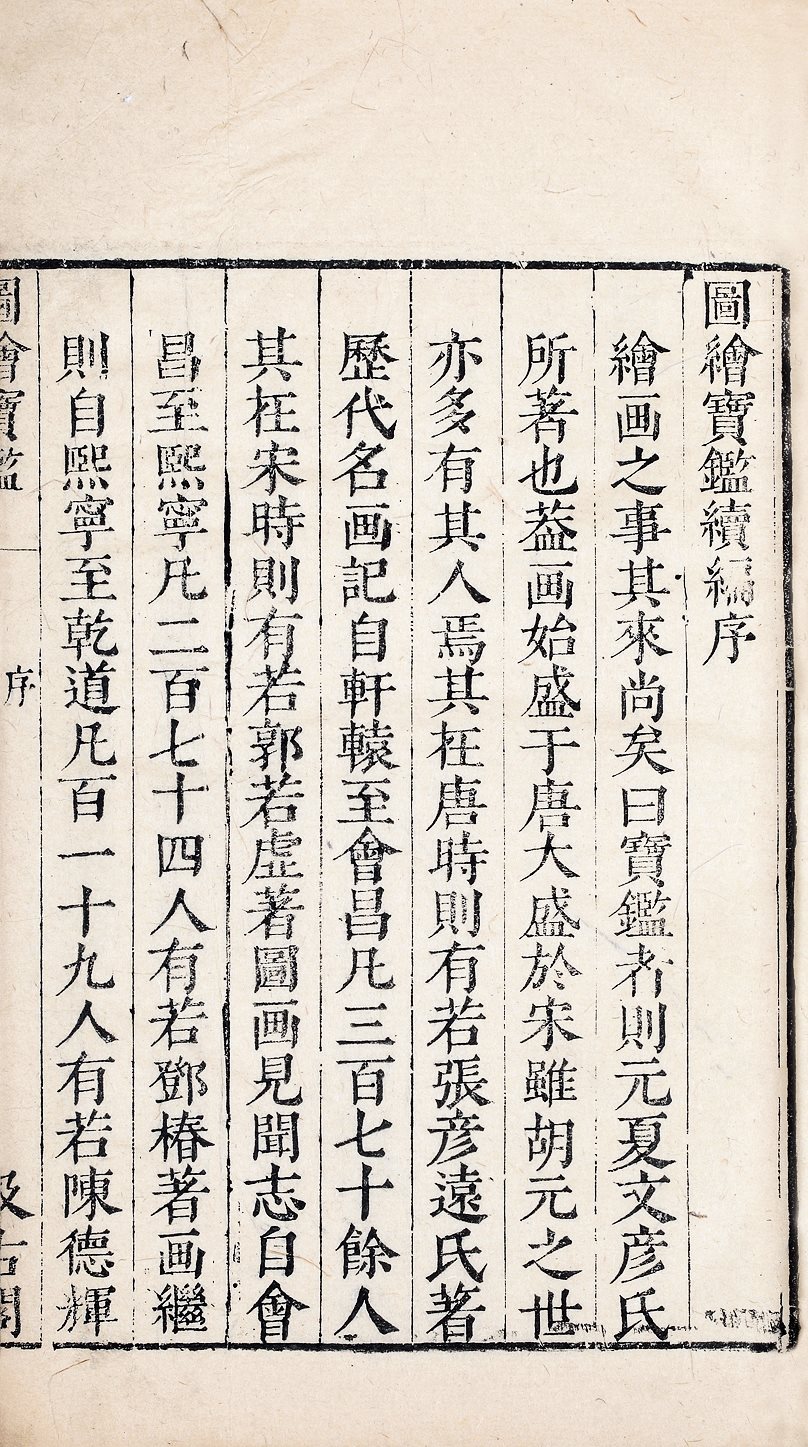 圖繪寶鑑續編序
繪画之事其來尚矣曰寶鑑者則元夏文彦氏
所著也葢画始盛于唐大盛於宋雖胡元之世
亦多有其人焉其在唐時則有若張彦遠氏著
歷代名画記自軒轅至會昌凡三百七十餘人
其在宋時則有若郭若虛著圖画見聞志自會
昌至熙寧凡二百七十四人有若鄧椿著画繼
則自熙寧至乾道凡百一十九人有若陳德輝
圖繪寶鑑 序 汲古閣